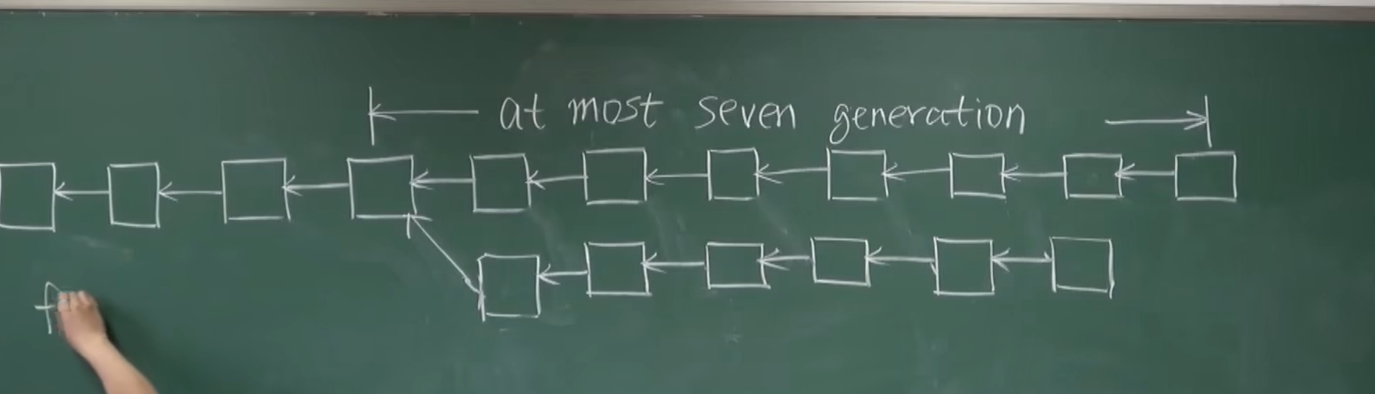 at most seven generation